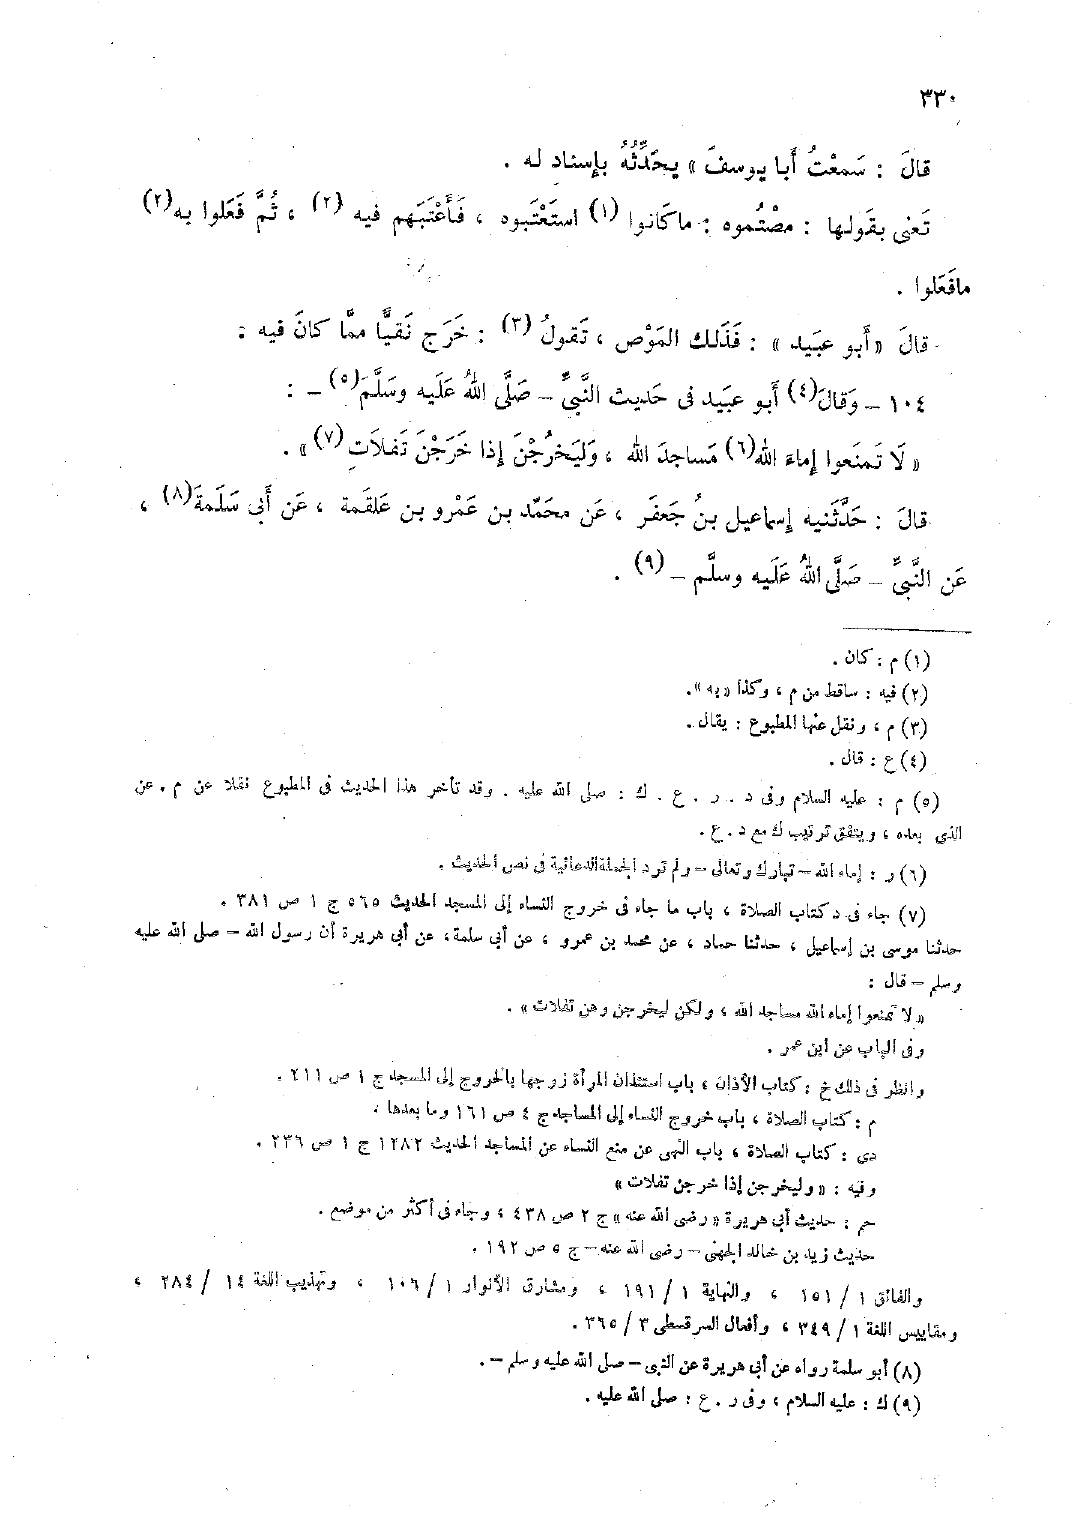 ٣٣٠
قالَ : سَمعْتُ أَبا يوسفَ » يحَدِّثُهُ بإسناد له .
تَعنى بقَولها : مصْتُموه : ماكَانوا (١) استَعْتَبوه ، فَأَعْتَبَهم فيه (٢) ، ثُمَّ فَعَلوا به(٢)
مافَعَلوا .
قالَ « أَبو عبَيد » : فَذَلك المَوْص ، تَقولُ (٣) : خَرَج نَقيًّا ممَّا كانَ فيه :
١٠٤ – وَقالَ(٤) أَبو عبَيد فى حَديث النَّبىِّ – صَلَّى اللهُ عَلَيه وسَلَّمَ(٥) – :
« لَا تَمنَعوا إماءَ الله(٦) مَساجدَ الله ، وَليَخرُجْنَ إذا خَرَجْنَ تَفلَات (٧) » .
قالَ : حَدَّثَنيه إسماعيل بنُ جَعفَر ، عَن محَمَّد بن عَمْرو بن عَلقَمة ، عَن أَبى سَلَمةَ(٨) ،
عَن النَّبىِّ – صَلَّى اللهُ عَلَيه وسلَّم – (٩) .
(١) م : كان .
(٢) فيه : ساقط من م ، وكذا « به ».
(٣) م ، ونقل عنها المطبوع : يقال .
(٤) ع : قال .
(٥) م : عليه السلام وفى د . ر . ع . ك : صلى الله عليه . وقد تأخر هذا الحديث فى المطبوع نقلا عن م . عن
الذى بعده ، ويتفق ترتيب ك مع د . ع .
(٦) ر : إماء الله – تبارك وتعالى – ولم ترد الجملة الدعائية فى نص الحديث .
(٧) جاء فى د كتاب الصلاة ، باب ما جاء فى خروج النساء إلى المسجد الحديث ٥٦٥ ج ١ ص ٣٨١ .
حدثنا موسى بن إسماعيل ، حدثنا حماد ، عن محمد بن عمرو ، عن أبي سلمة، عن أبى هريرة أن رسول الله – صلى الله عليه
وسلم – قال :
« لا تمنعوا إماء الله مساجد الله ، ولكن ليخرجن وهن تفلات » .
وفى الباب عن ابن عمر .
وانظر فى ذلك خ : كتاب الأذان ، باب استئذان المرأة زوجها بالخروج إلى المسجد ج ١ ص ٢١١ .
م : كتاب الصلاة ، باب خروج النساء إلى المساجد ج ٤ ص ١٦١ وما بعدها .
دى : كتاب الصلاة ، باب النهى عن منع النساء عن المساجد الحديث ١٢٨٢ ج ١ ص ٢٣٦ .
وفيه : « وليخرجن إذا خرجن تفلات »
حم : حديث أبي هريرة « رضى الله عنه » ج ٢ ص ٤٣٨ ، وجاء فى أكثر من موضع .
حديث زيد بن خالد الجهنى – رضى الله عنه – ج ٥ ص ١٩٢ .
والفائق ١ / ١٥١ ، والنهاية ١ / ١٩١ ، ومشارق الأنوار ١ / ١٠٦ ، وتهذيب اللغة ١٤ / ٢٨٤ ،
ومقاييس اللغة ١ / ٣٤٩ ، وأفعال السرقسطى ٣ / ٣٦٥ .
(٨) أبو سلمة رواه عن أبى هريرة عن النبى – صلى الله عليه وسلم – .
(٩) ك : عليه السلام ، وفى ر . ع : صلى الله عليه .